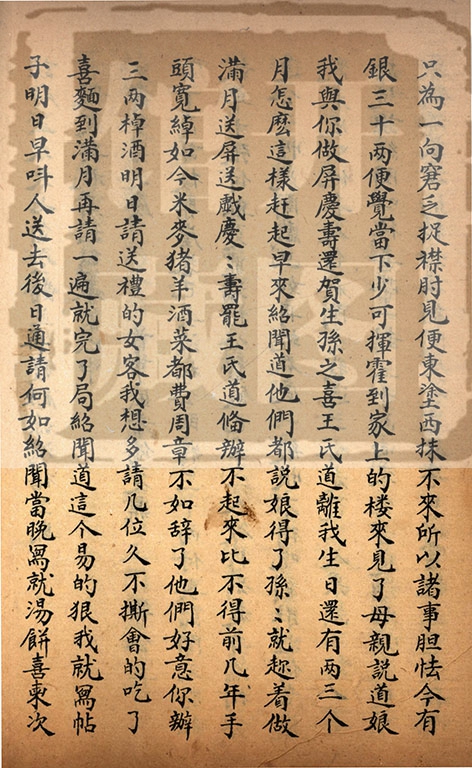 只為一向窘乏捉襟肘見便東塗西抹不來所以諸事胆怯今有
銀三十两便覺當下少可揮霍到家上的楼來見了母親説道娘
我與你做屏慶壽還賀生孫之喜王氏道離我生日還有两三个
月怎麽這樣赶起早來紹聞道他們都説娘得了孫〻就趂着做
滿月送屏送戲慶〻壽罷王氏道偹辦不起來比不得前几年手
頭寬綽如今米麥猪羊酒菜都費周章不如辞了他們好意你辦
三两棹酒明日請送禮的女客我想多請几位久不撕會的吃了
喜麵到滿月再請一遍就完了局紹聞道這个易的狠我就寫帖
子明日早呌人送去後日通請何如紹聞當晚寫就湯餅喜柬次